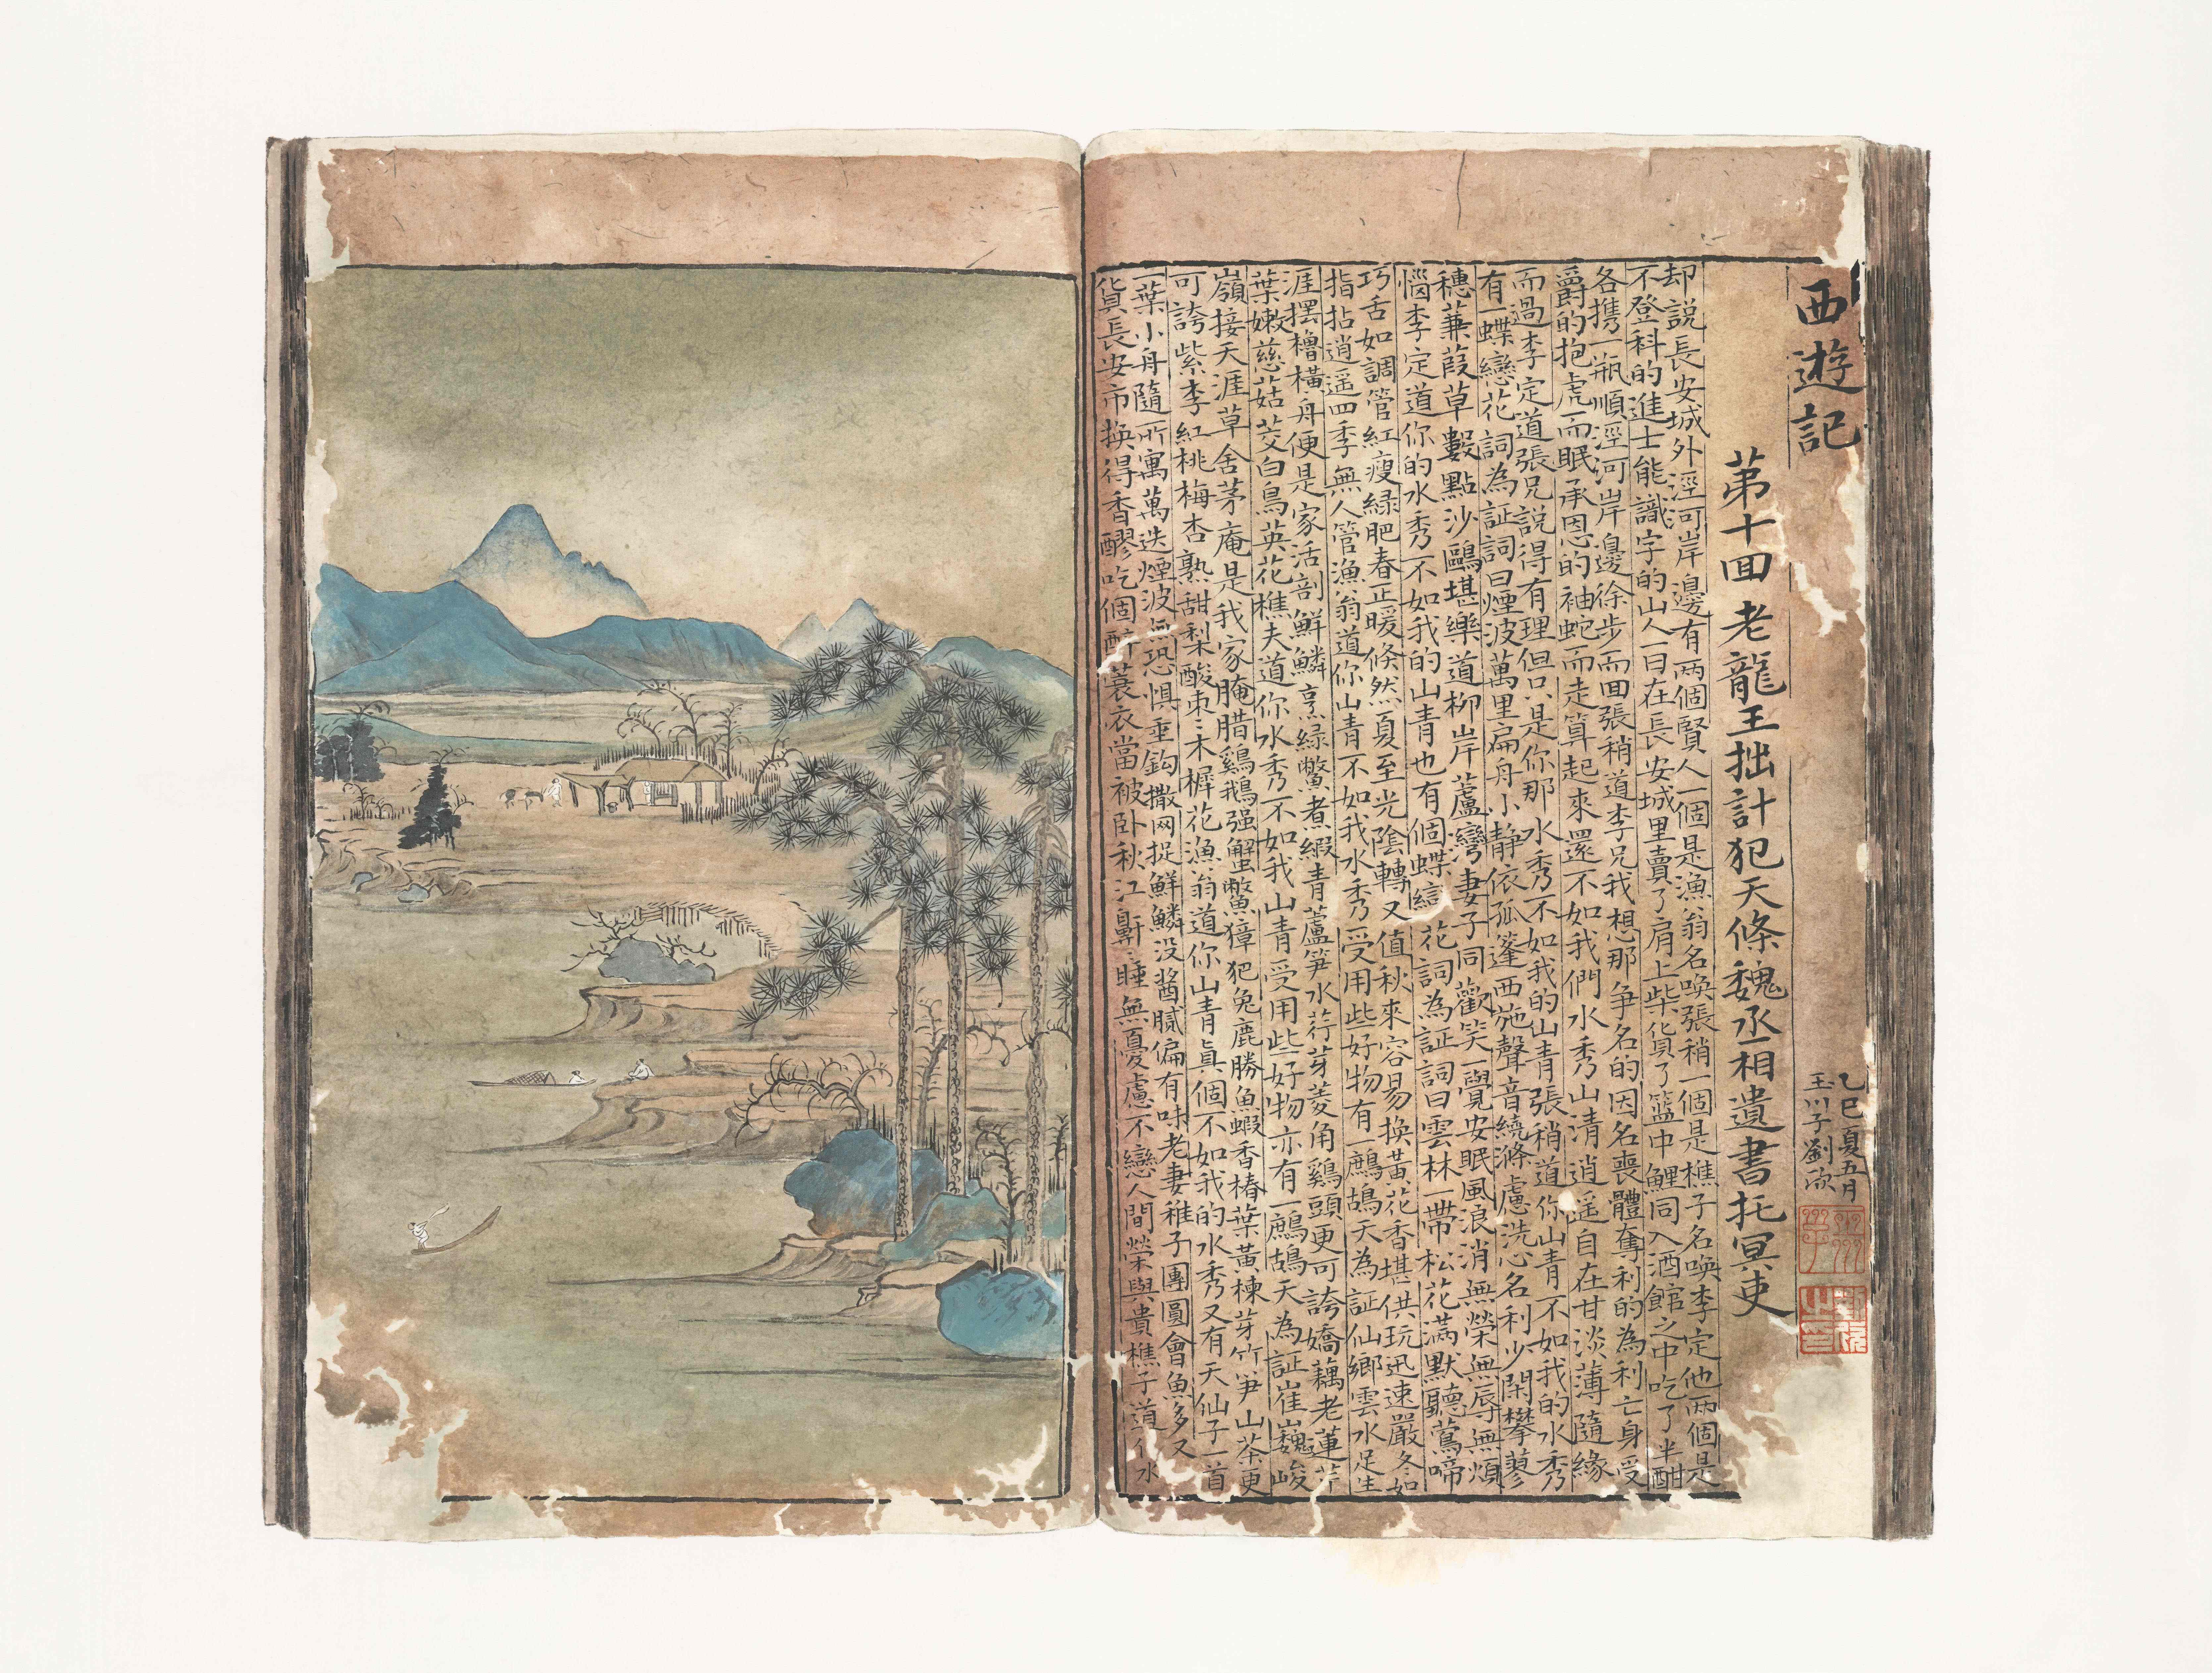 西遊記
乙巳夏五月
玉川子劉
第十回老龍王拙計犯天條魏丞相遺書托冥吏
却説長安城外涇河岸邊有两個賢人一個是漁翁名喚張稍一個是樵子名喚李定他两個是
不登科的進士能識字的山人一日在長安城里賣了肩上柴貨了籃中鯉同入酒館之中吃了半酣
各携一瓶順涇河岸邊徐步而回張稍道李兄我想那争名的因名喪體奪利的為利亡身受
爵的抱虎而眠承恩的袖蛇而走算起來還不如我們水秀山清逍遥自在甘淡薄隨緣
而過李定道張兄説得有理但只是你那水秀不如我的山青張稍道你山青不如我的水秀
有一蝶戀花詞為証詞曰煙波萬里扁舟小静依孤篷西施聲音繞滌慮洗心名利少閑攀蓼
穗蒹葭草數點沙鷗堪樂道柳岸蘆灣妻子同歡笑一覺安眠風浪消無榮無辱無煩
惱李定道你的水秀不如我的山青也有個蝶戀花詞為証詞曰雲林一帶松花满默聽鶯啼
巧舌如調管紅瘦緑肥春正暖倏然夏至光陰轉又值秋來容易换黄花香堪供玩迅速嚴冬如
指拈逍遥四季無人管漁翁道你山青不如我水秀受用些好物有一鷓鴣天為証仙鄉雲水足生
涯擺櫓橫舟便是家活剖鮮鱗烹緑鱉煮蝦青蘆笋水荇芽菱角鷄頭更可誇嬌藕老蓮芹
葉嫩慈菇茭白鳥英花樵夫道你水秀不如我山青受用些好物亦有一鷓鴣天為証崔巍峻
嶺接天涯草舍茅庵是我家腌腊鷄鵝强蟹鱉獐犯兔鹿勝魚蝦香椿葉黄楝芽竹笋山茶更
可誇紫李紅桃梅杏熟甜梨酸枣〻木樨花漁翁道你山青真個不如我的水秀又有天仙子一首
一葉小舟隨所寓萬迭煙波無恐惧垂鈎撒网捉鮮鱗没醬膩偏有味老妻稚子團圓會魚多又
貨長安市换得香醪吃個醉蓑衣當被卧秋江鼾〻睡無憂慮不戀人間榮與貴樵子道你水